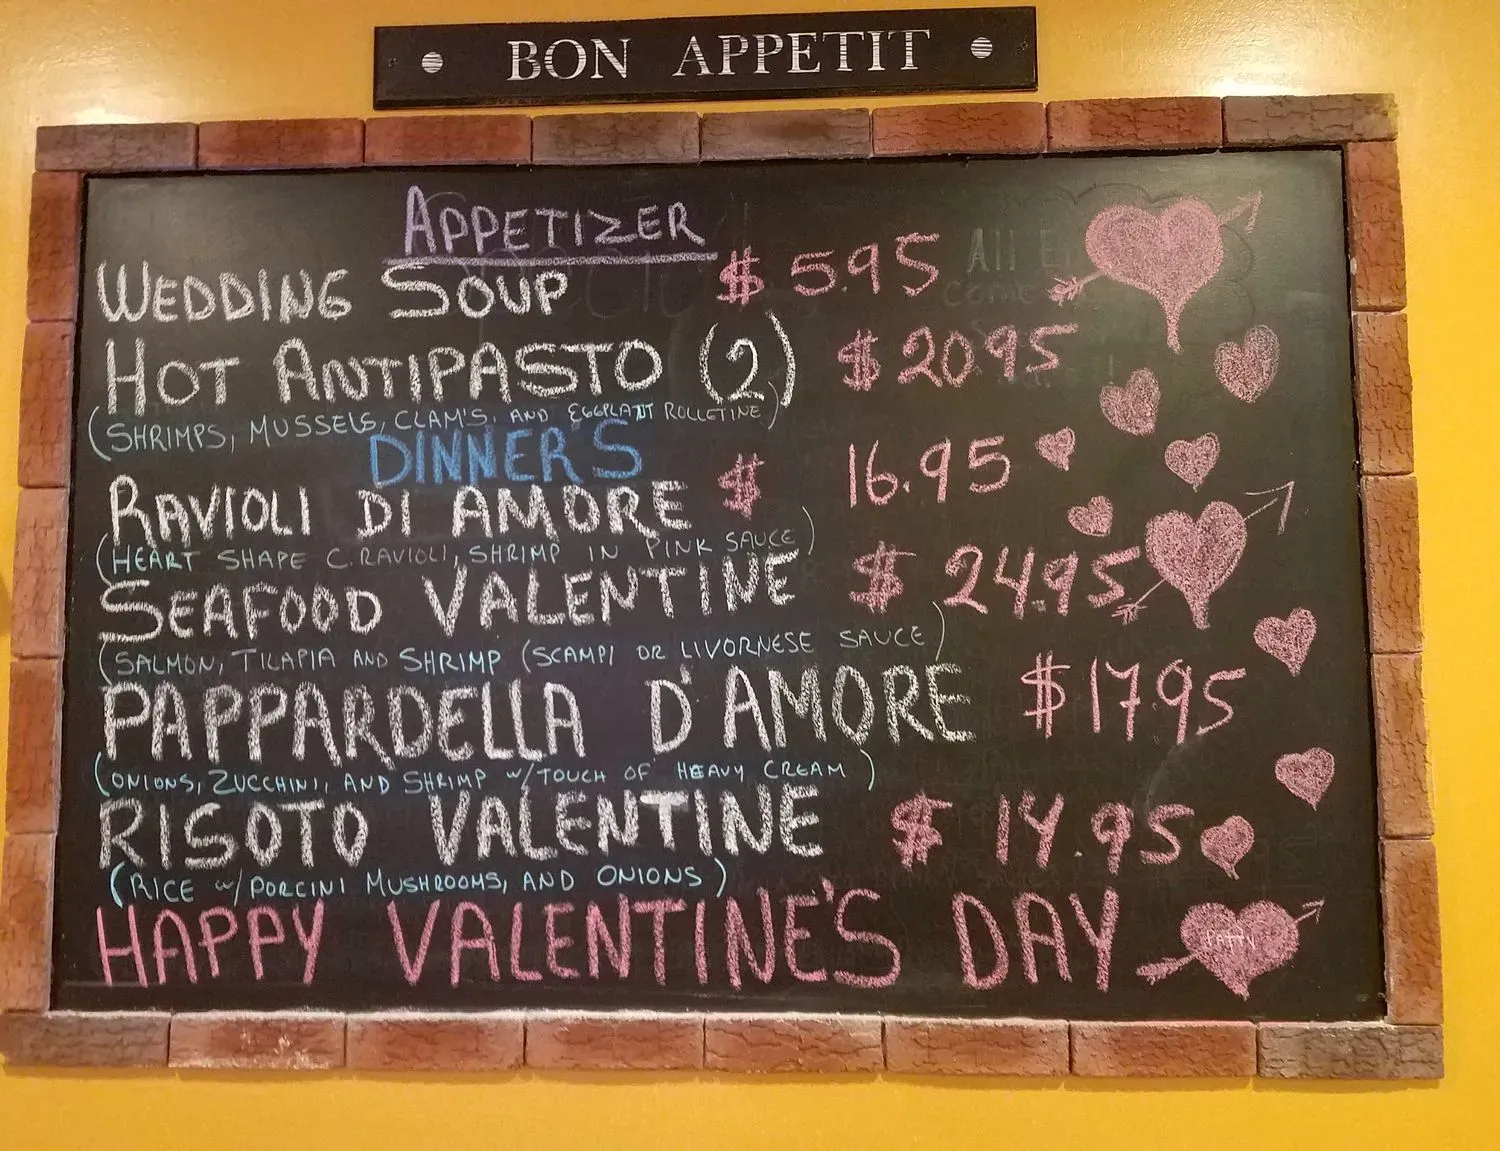 BON APPETIT
APPETIZER
WEDDING SOUP $ 5.95
HOT ANTIPASTO (2) $ 20.95
(SHRIMPS, MUSSELS, CLAM'S, AND EGGPLANT ROLLETINE)
DINNERS
RAVIOLI DI AMORE $ 16.95
(HEART SHAPE C. RAVIOLI, SHRIMP IN PINK SAUCE)
SEAFOOD VALENTINE $ 24.95
(SALMON, TILAPIA AND SHRIMP (SCAMPI OR LIVORNESE SAUCE)
PAPPARDELLA D'AMORE $ 17.95
(ONIONS, ZUCCHINI, AND SHRIMP w/TOUCH OF HEAVY CREAM)
RISOTO VALENTINE $ 14.95
(RICE w/PORCINI MUSHROOMS, AND ONIONS)
HAPPY VALENTINE'S DAY
PATTY